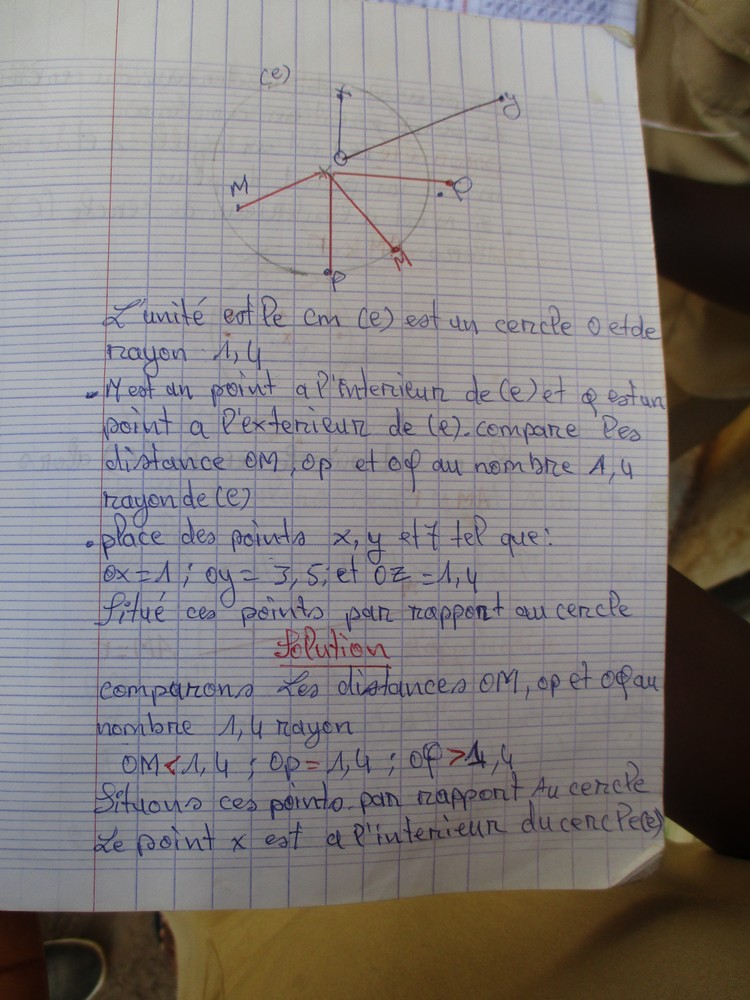 (e)
y
O
M
Q
M
P
L'unité est le cm (e) est un cercle O et de
rayon 1,4
. M est un point a l'interieur de (e) et Q est un
point a l'exterieur de (e). compare les
distance OM, Op et OQ au nombre 1,4
rayon de (e)
. place des points x, y et Z tel que:
Ox = 1 ; Oy = 3,5; et Oz = 1,4
Situé ces points par rapport au cercle
Solution
comparons Les distances OM, op et OQ au
nombre 1,4 rayon
OM < 1,4 ; Op = 1,4 ; OQ > 1,4
Situons ces points par rapport Au cercle
Le point x est a l'interieur du cercle (e)